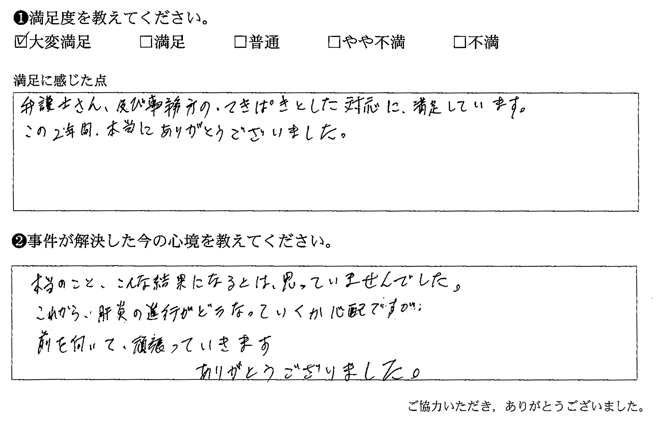 ❶満足度を教えてください。
☑大変満足 □満足 □普通 □やや不満 □不満
満足に感じた点
弁護士さん、及び事務方の、てきぱきとした対応に、満足しています。
この2年間、本当にありがとうございました。
❷事件が解決した今の心境を教えてください。
本当のこと、こんな結果になるとは、思っていませんでした。
これから、肝炎の進行がどうなっていくか心配ですが、
前を向いて、頑張っていきます
ありがとうございました。
ご協力いただき，ありがとうございました。